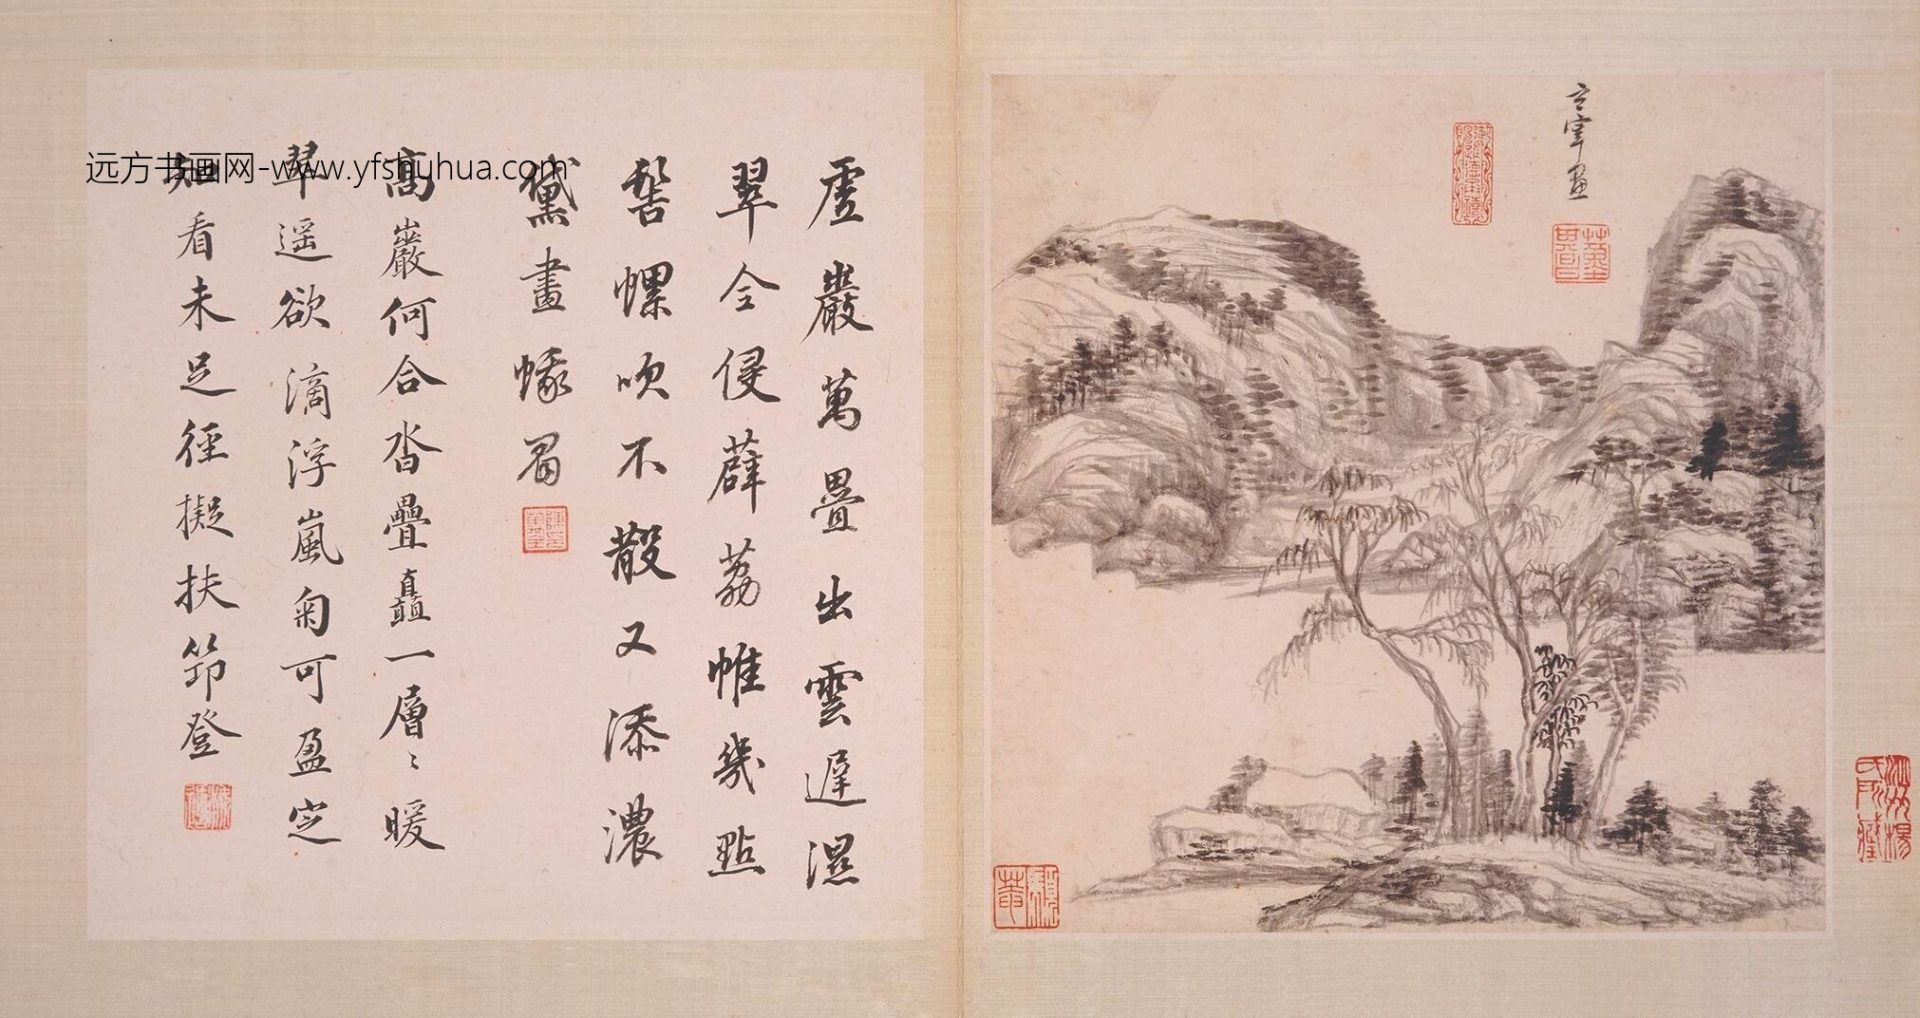 玄宰画
虛巖萬疊出雲遲濕
翠全侵薜荔帷幾點
髻螺吹不散又添濃
黛畫蛾眉
高巖何合沓疊矗一層〻暖
翠遥欲滴浮嵐匊可盈定
知看未足徑擬扶笻登
远方书画网-www.yfshuhua.com